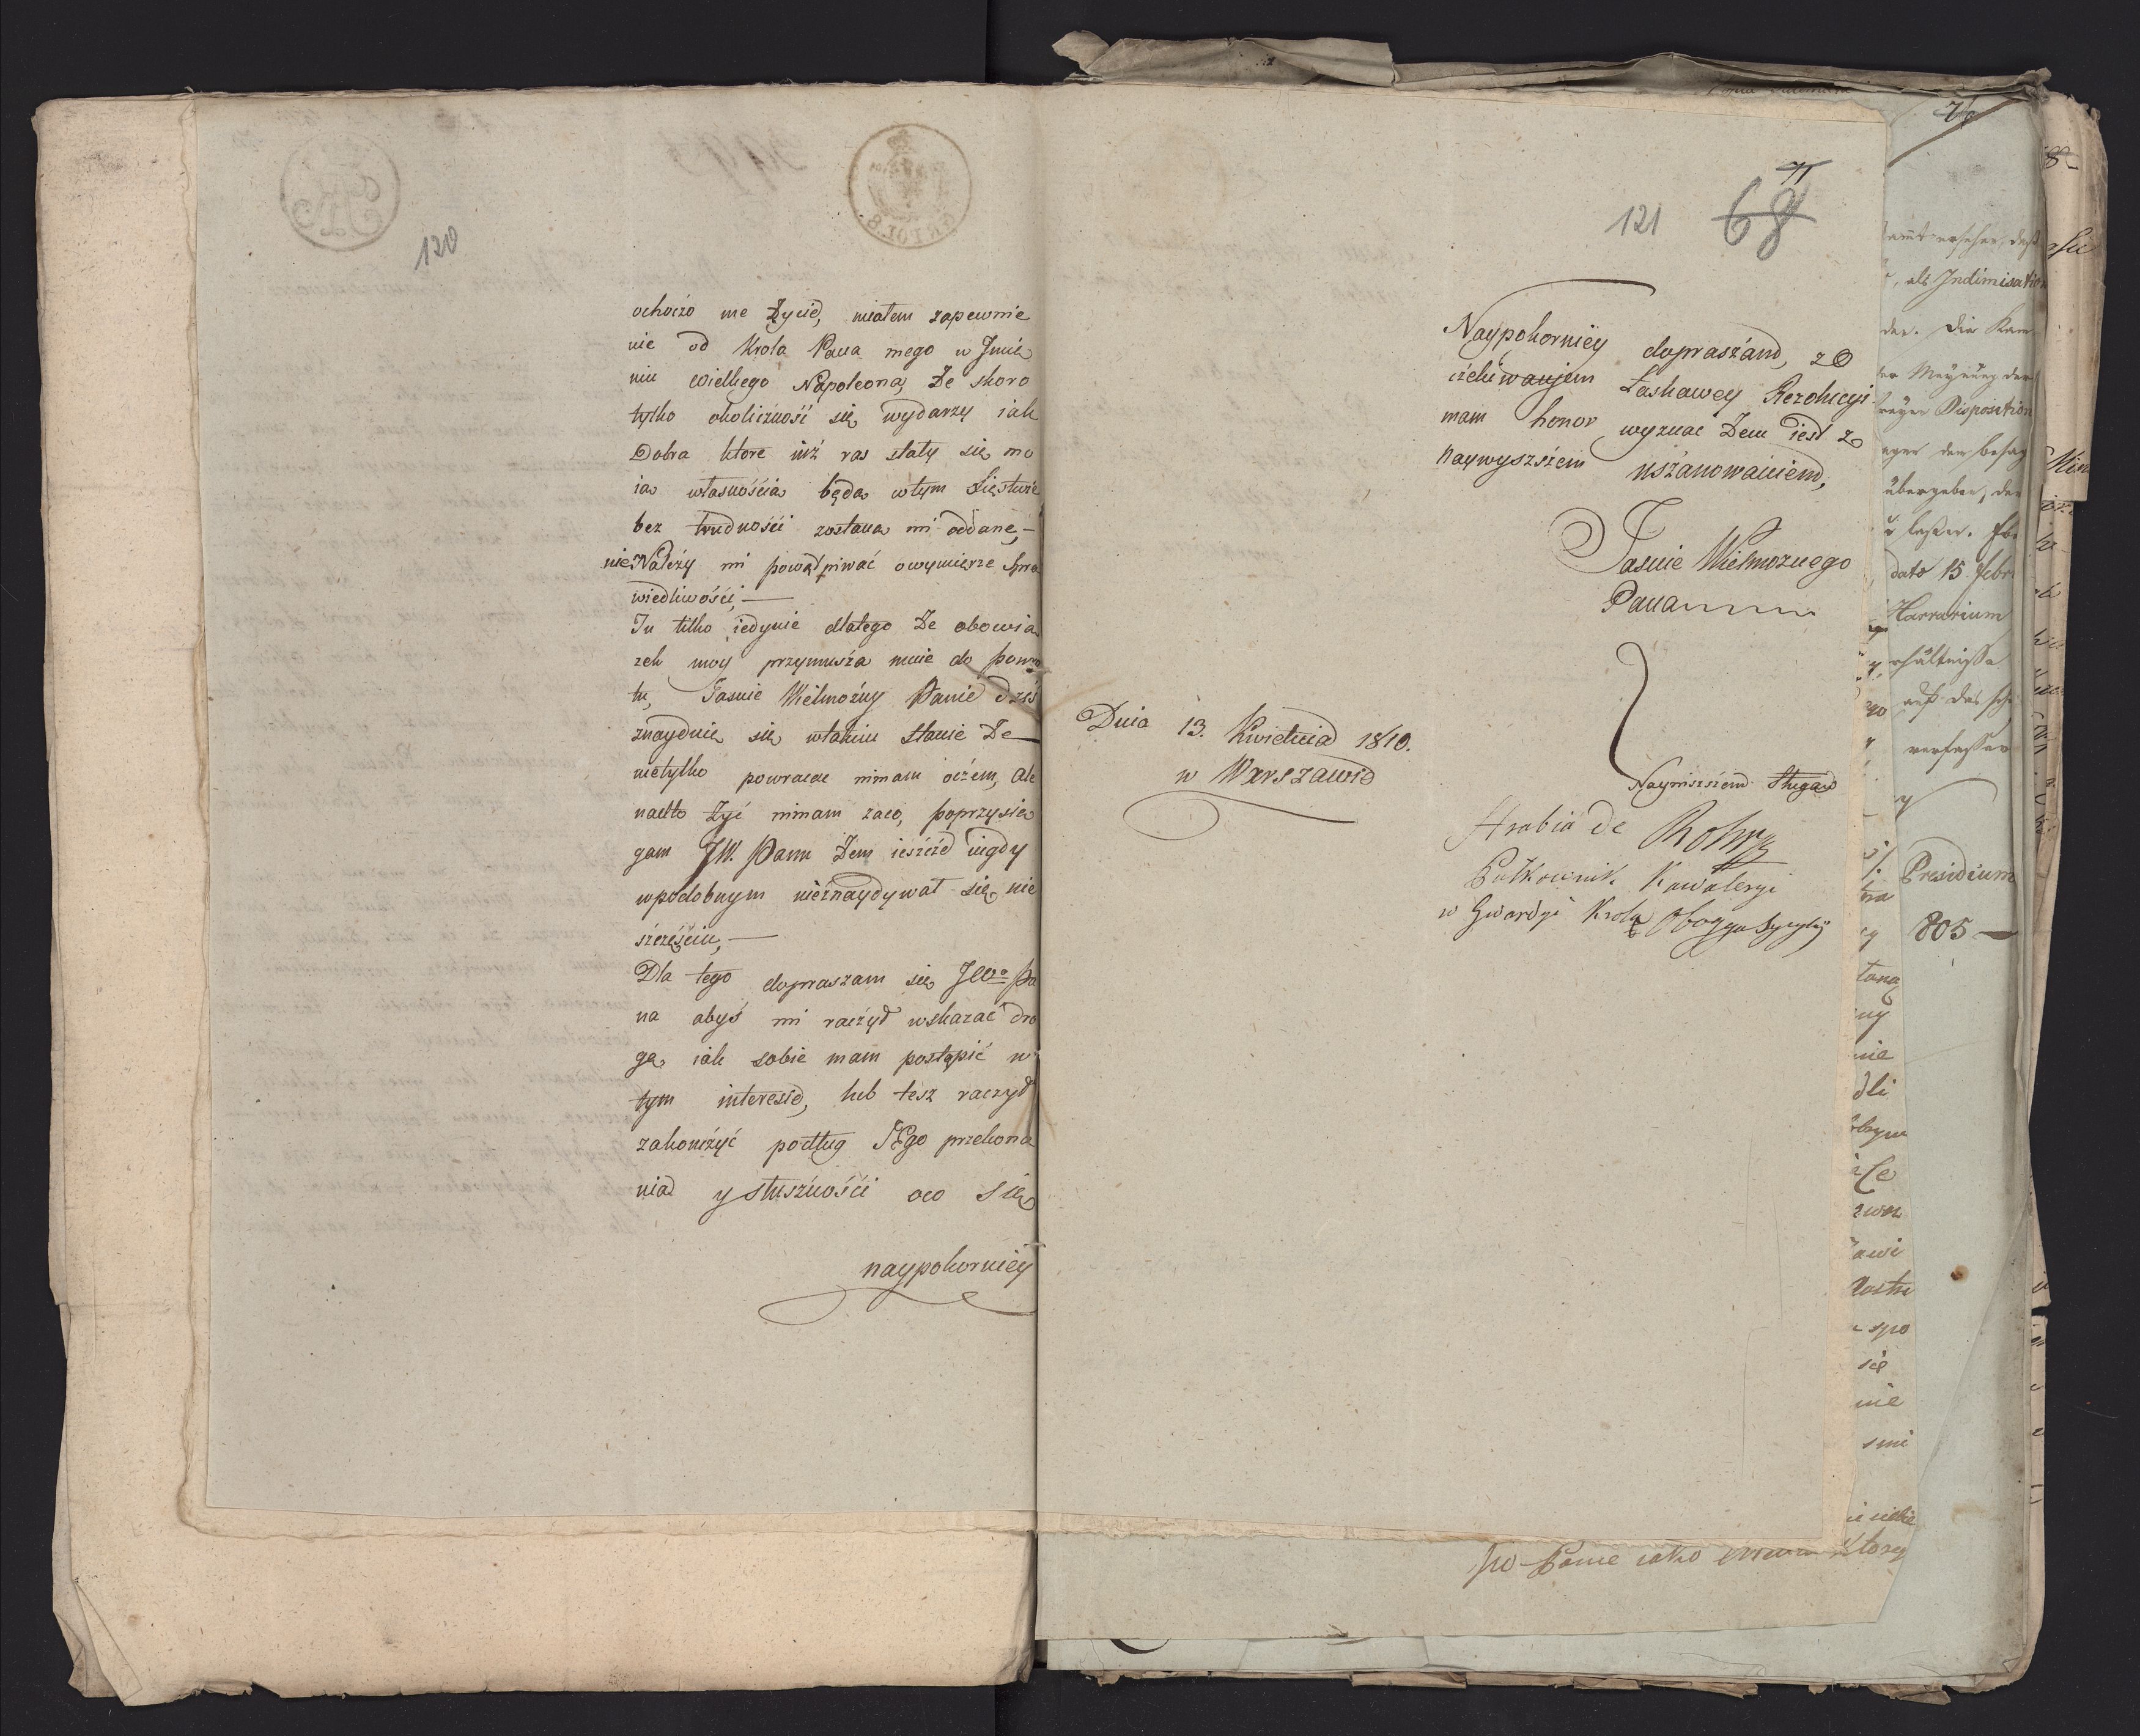 120
ochoczo me Życie, miałem zapewnie
nie od Krola Pana mego w Jmie
niu wielkiego Napoleona, Że skoro
tylko okoliczność się wydarzy iak
Dobra ktore iuż ras stały się mo
ią własnością będą w tym Xięstwie
bez trudności zostaną mi oddane,—
nie Należy mi powątpiwać o wymierze Spra
wiedliwości,—
Tu tilko iedynie dlatego Że obowią
zek moy przymusza mnie do powro
tu, Jasnie Wielmożny Panie dziś
znayduię się w takim Stanie Że—
nietylko powracac nimam oczem, ale
nadto Żyć nimam zaco, poprzysię
gam JW. Panu Żem ieszcze nigdy
w podobnym nieznaydywał się nie
szczęściu,—
Dla tego dopraszam się JWo Pa
na abyś mi raczył wskazać dro
gę iak sobie mam postąpić w
tym interesie, lub tesz raczył
zakończyć podług Jego przekona
nia y słuszności oco się
naypokorniey
121 68
71
Naypokorniey dopraszam, z O
czekiwaniem Łaskawey Rezolucyi
mam honor wyznac Żem iest z
naywyszsiem uszanowaniem,
Jasnie Wielmoznego
Pana
Dnia 13. Kwietnia 1810.
w Warszawie
Nayniszsiem Sługa
Hrabia de
Pułkownik Kawaleryi
w Gwardyi Krola Oboyga Sycylij
als
dato 15 febr
Presidium
805—
JW Panie iako